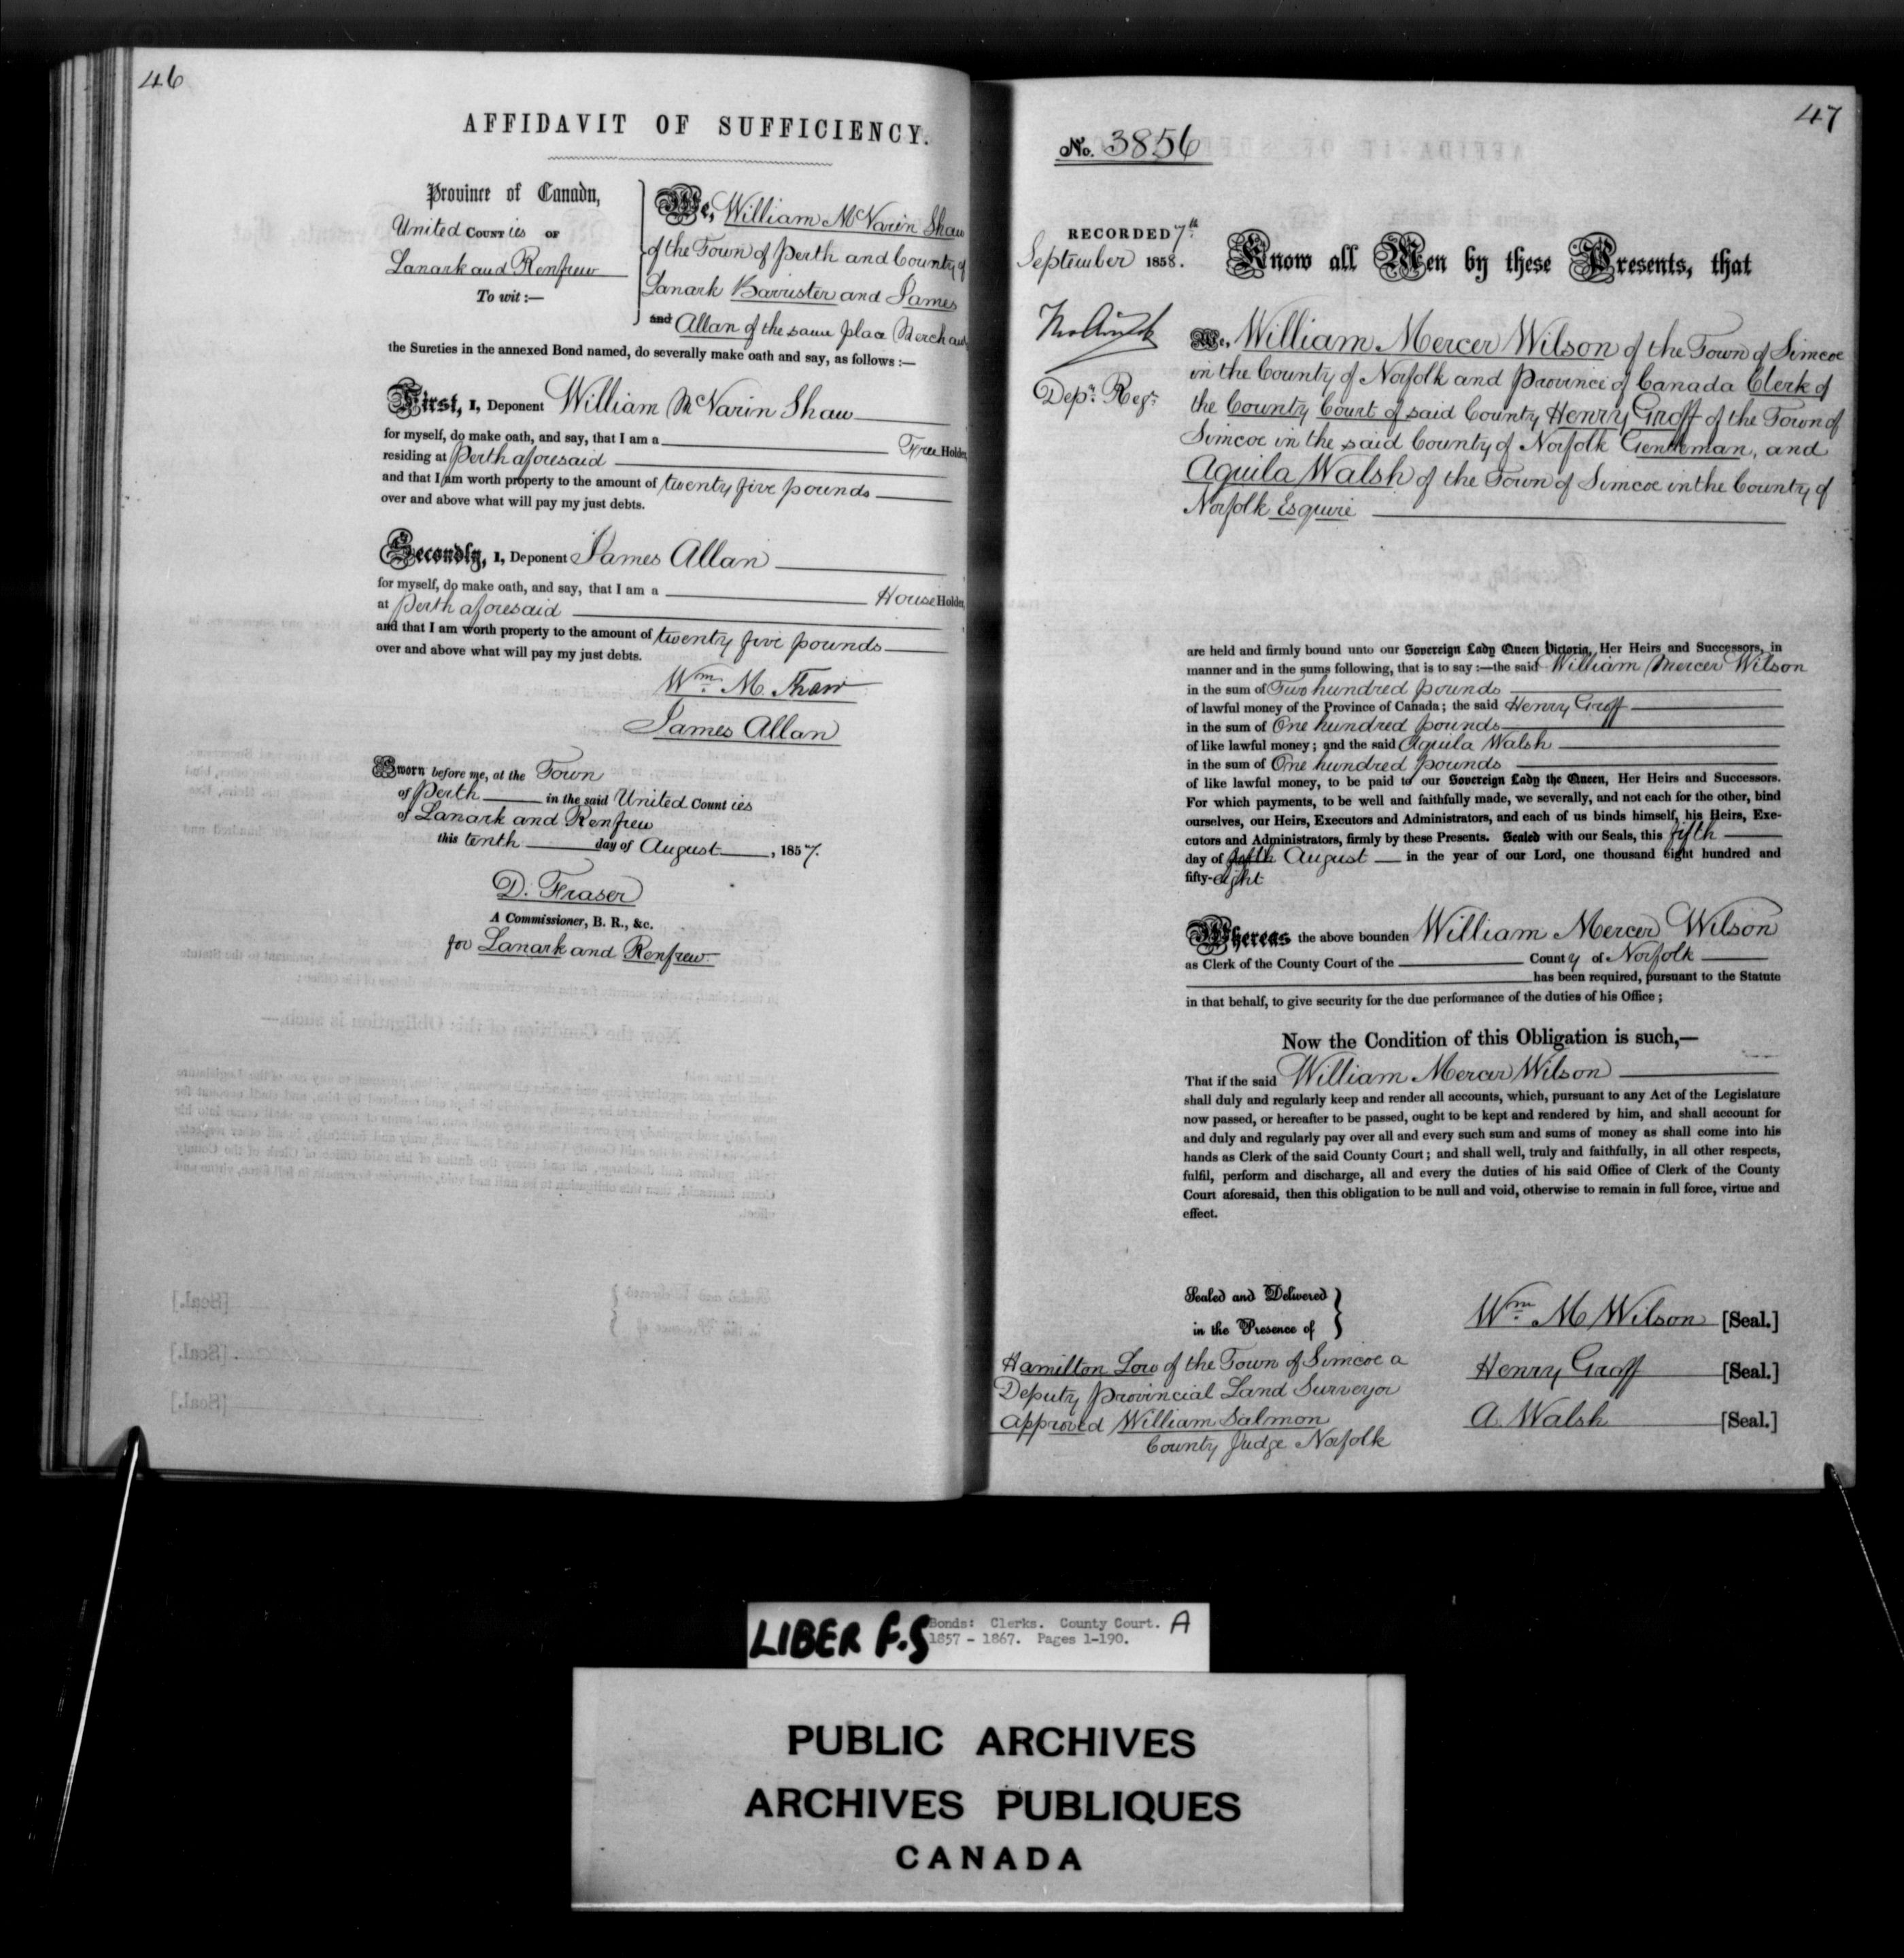 46
AFFIDAVIT OF SUFFICIENCY.
Province of Canada,
United Counties of
Lanark and Renfrew
To wit:—
We, William McNarin Shaw
of the Town of Perth and County of
Lanark Barrister and James
and Allan of the same place Merchant
the Sureties in the annexed Bond named, do severally make oath and say, as follows:—
First, I, Deponent William McNarin Shaw
for myself, do make oath, and say, that I am a Free Holder,
residing at Perth aforesaid
and that I am worth property to the amount of twenty five pounds
over and above what will pay my just debts.
Secondly, I, Deponent James Allan
for myself, do make oath, and say, that I am a House Holder,
at Perth aforesaid
and that I am worth property to the amount of twenty five pounds
over and above what will pay my just debts.
Wm. M. Shaw
James Allan
Sworn before me, at the Town
of Perth in the said United Counties
of Lanark and Renfrew
this tenth day of August, 1857.
D. Fraser
A Commissioner, B. R., &c.
for Lanark and Renfrew.
47
No. 3856
RECORDED 7th
September 1858.
Depy. Regr.
Know all Men by these Presents, that
We, William Mercer Wilson of the Town of Simcoe
in the County of Norfolk and Province of Canada Clerk of
the County Court of said County Henry Groff of the Town of
Simcoe in the said County of Norfolk Gentleman, and
Aquila Walsh of the Town of Simcoe in the County of
Norfolk Esquire
are held and firmly bound unto our Sovereign Lady Queen Victoria, Her Heirs and Successors, in
manner and in the sums following, that is to say:—the said William Mercer Wilson
in the sum of Two hundred pounds
of lawful money of the Province of Canada; the said Henry Groff
in the sum of One hundred pounds
of like lawful money; and the said Aquila Walsh
in the sum of One hundred pounds
of like lawful money, to be paid to our Sovereign Lady the Queen, Her Heirs and Successors.
For which payments, to be well and faithfully made, we severally, and not each for the other, bind
ourselves, our Heirs, Executors and Administrators, and each of us binds himself, his Heirs, Exe-
cutors and Administrators, firmly by these Presents. Sealed with our Seals, this fifth
day of August in the year of our Lord, one thousand eight hundred and
fifty-eight
Whereas the above bounden William Mercer Wilson
as Clerk of the County Court of the County of Norfolk
has been required, pursuant to the Statute
in that behalf, to give security for the due performance of the duties of his Office;
Now the Condition of this Obligation is such,—
That if the said William Mercer Wilson
shall duly and regularly keep and render all accounts, which, pursuant to any Act of the Legislature
now passed, or hereafter to be passed, ought to be kept and rendered by him, and shall account for
and duly and regularly pay over all and every such sum and sums of money as shall come into his
hands as Clerk of the said County Court; and shall well, truly and faithfully, in all other respects,
fulfil, perform and discharge, all and every the duties of his said Office of Clerk of the County
Court aforesaid, then this obligation to be null and void, otherwise to remain in full force, virtue and
effect.
Sealed and Delivered
in the Presence of
Hamilton Low of the Town of Simcoe a
Deputy Provincial Land Surveyor
Approved William Salmon
County Judge Norfolk
Wm. M Wilson [Seal.]
Henry Groff [Seal.]
A. Walsh [Seal.]
LIBER F.S
Bonds: Clerks. County Court. A
1857 - 1867. Pages 1-190.
PUBLIC ARCHIVES
ARCHIVES PUBLIQUES
CANADA